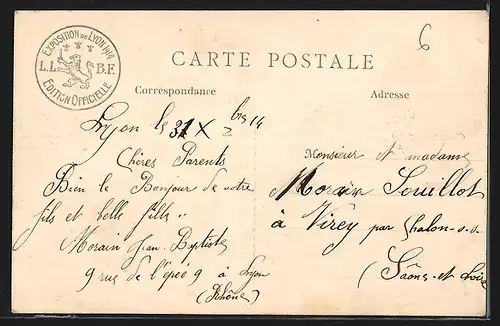 EXPOSITION DE LYON 1914
L.L. B.F.
EDITION OFFICIELLE
6
CARTE POSTALE
Correspondance
Adresse
Lyon le 31 X bre 14
Chères Parents
Bien le Bonjour de votre
fils et belle fille
Morain Jean Baptiste
9 rue de l'épée 9 à Lyon
(Rhône)
Monsieur et madame
Morain Souillot
à Virey par Chalon-s-s
(Saône-et-Loire